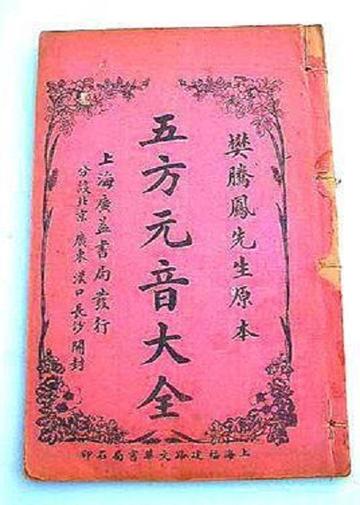 樊騰鳳先生原本
五方元音大全
上海廣益書局發行
分設北京 廣東 漢口 長沙 開封
上海福建路文華書局石印